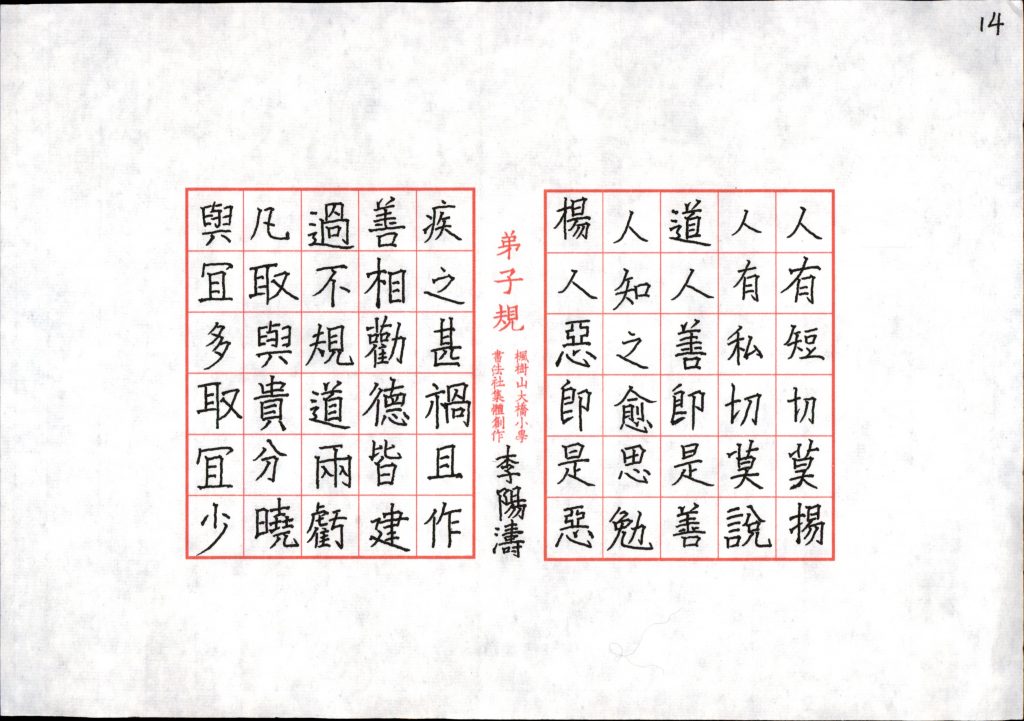 14
人有短切莫揚
人有私切莫說
道人善即是善
人知之愈思勉
楊人惡即是惡
弟子規
楓樹山大橋小學
書法社集體創作
李陽濤
疾之甚禍且作
善相勸德皆建
過不規道兩虧
凡取與貴分曉
與冝多取冝少